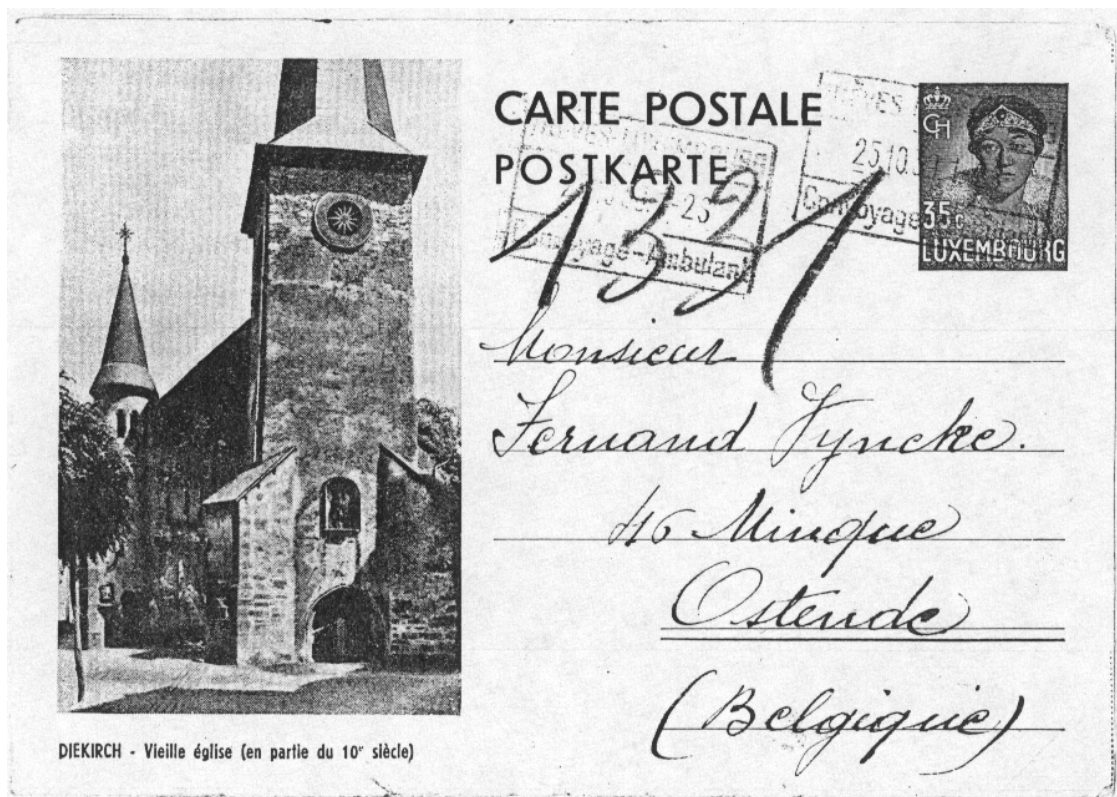 CARTE POSTALE
POSTKARTE
TRÈVES-LUXEMBOURG
-23
Convoyage-Ambulant
TRÈVES
25.10.3
Convoyage
GH
35c
LUXEMBOURG
1321
Monsieur
Fernand Vyncke.
46 Minque
Ostende
(Belgique)
DIEKIRCH - Vieille église (en partie du 10e siècle)